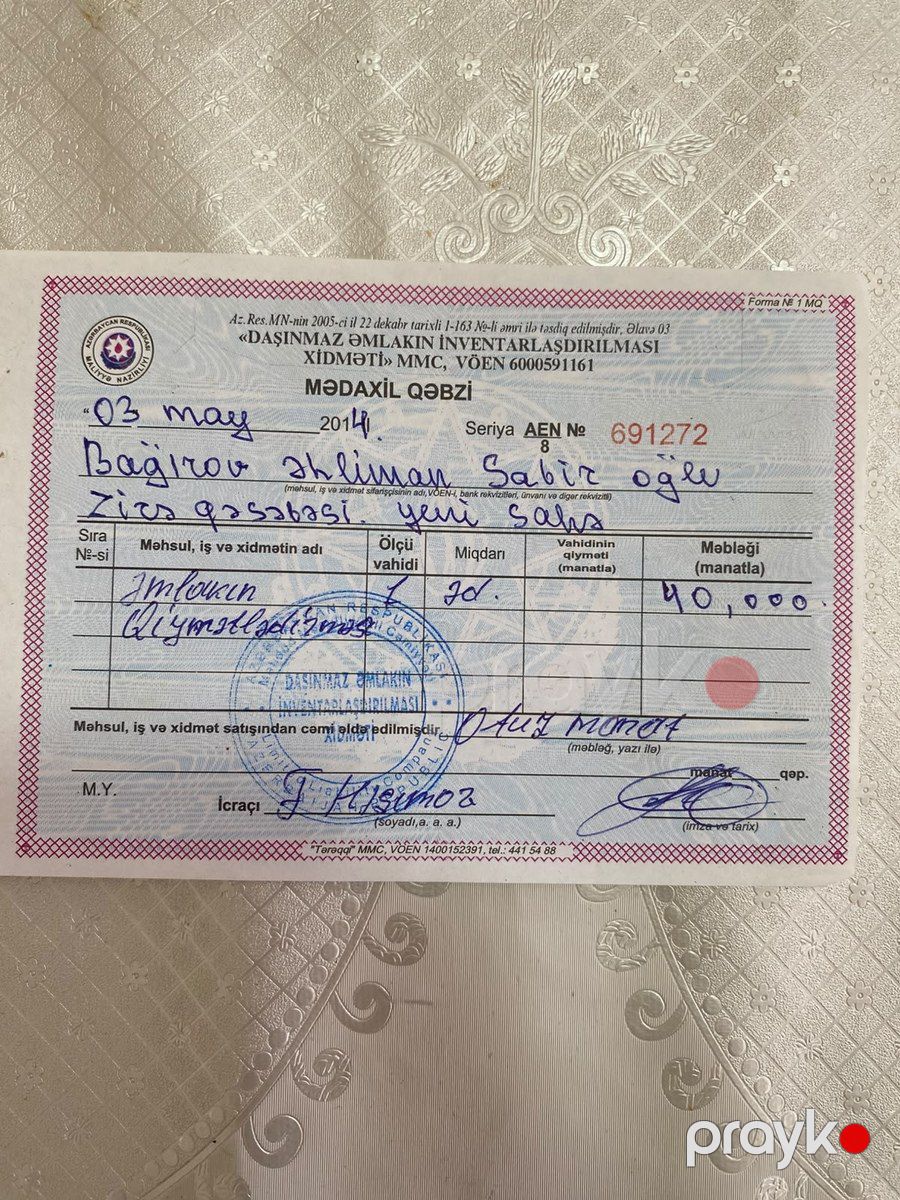 Forma № 1 MQ
Az.Res.MN-nin 2005-ci il 22 dekabr tarixli 1-163 №-li əmri ilə təsdiq edilmişdir, Əlavə 03
«DAŞINMAZ ƏMLAKIN İNVENTARLAŞDIRILMASI
XİDMƏTİ» MMC, VÖEN 6000591161
AZƏRBAYCAN RESPUBLİKASI MALİYYƏ NAZİRLİYİ
MƏDAXİL QƏBZİ
"03 may 2014
Seriya AEN № 691272
8
Bağırov Əhliman Sabir oğlu
(məhsul, iş və xidmət sifarişçisinin adı, VÖEN-i, bank rekvizitləri, ünvanı və digər rekviziti)
Zirə qəsəbəsi. yeni sahə
Sıra №-si Məhsul, iş və xidmətin adı Ölçü vahidi Miqdarı Vahidinin qiyməti (manatla) Məbləği (manatla)
Əmlakın 1 əd. 40,000.
Qiymətlədirməsi
DAŞINMAZ ƏMLAKIN
İNVENTARLAŞDIRILMASI
XİDMƏTİ
Məhsul, iş və xidmət satışından cəmi əldə edilmişdir Otuz manat
(məbləğ, yazı ilə)
manat qəp.
M.Y.
İcraçı
(soyadı, a. a. a.)
(imza və tarix)
"Tərəqqi" MMC, VÖEN 1400152391, tel.: 441 54 88
prayk